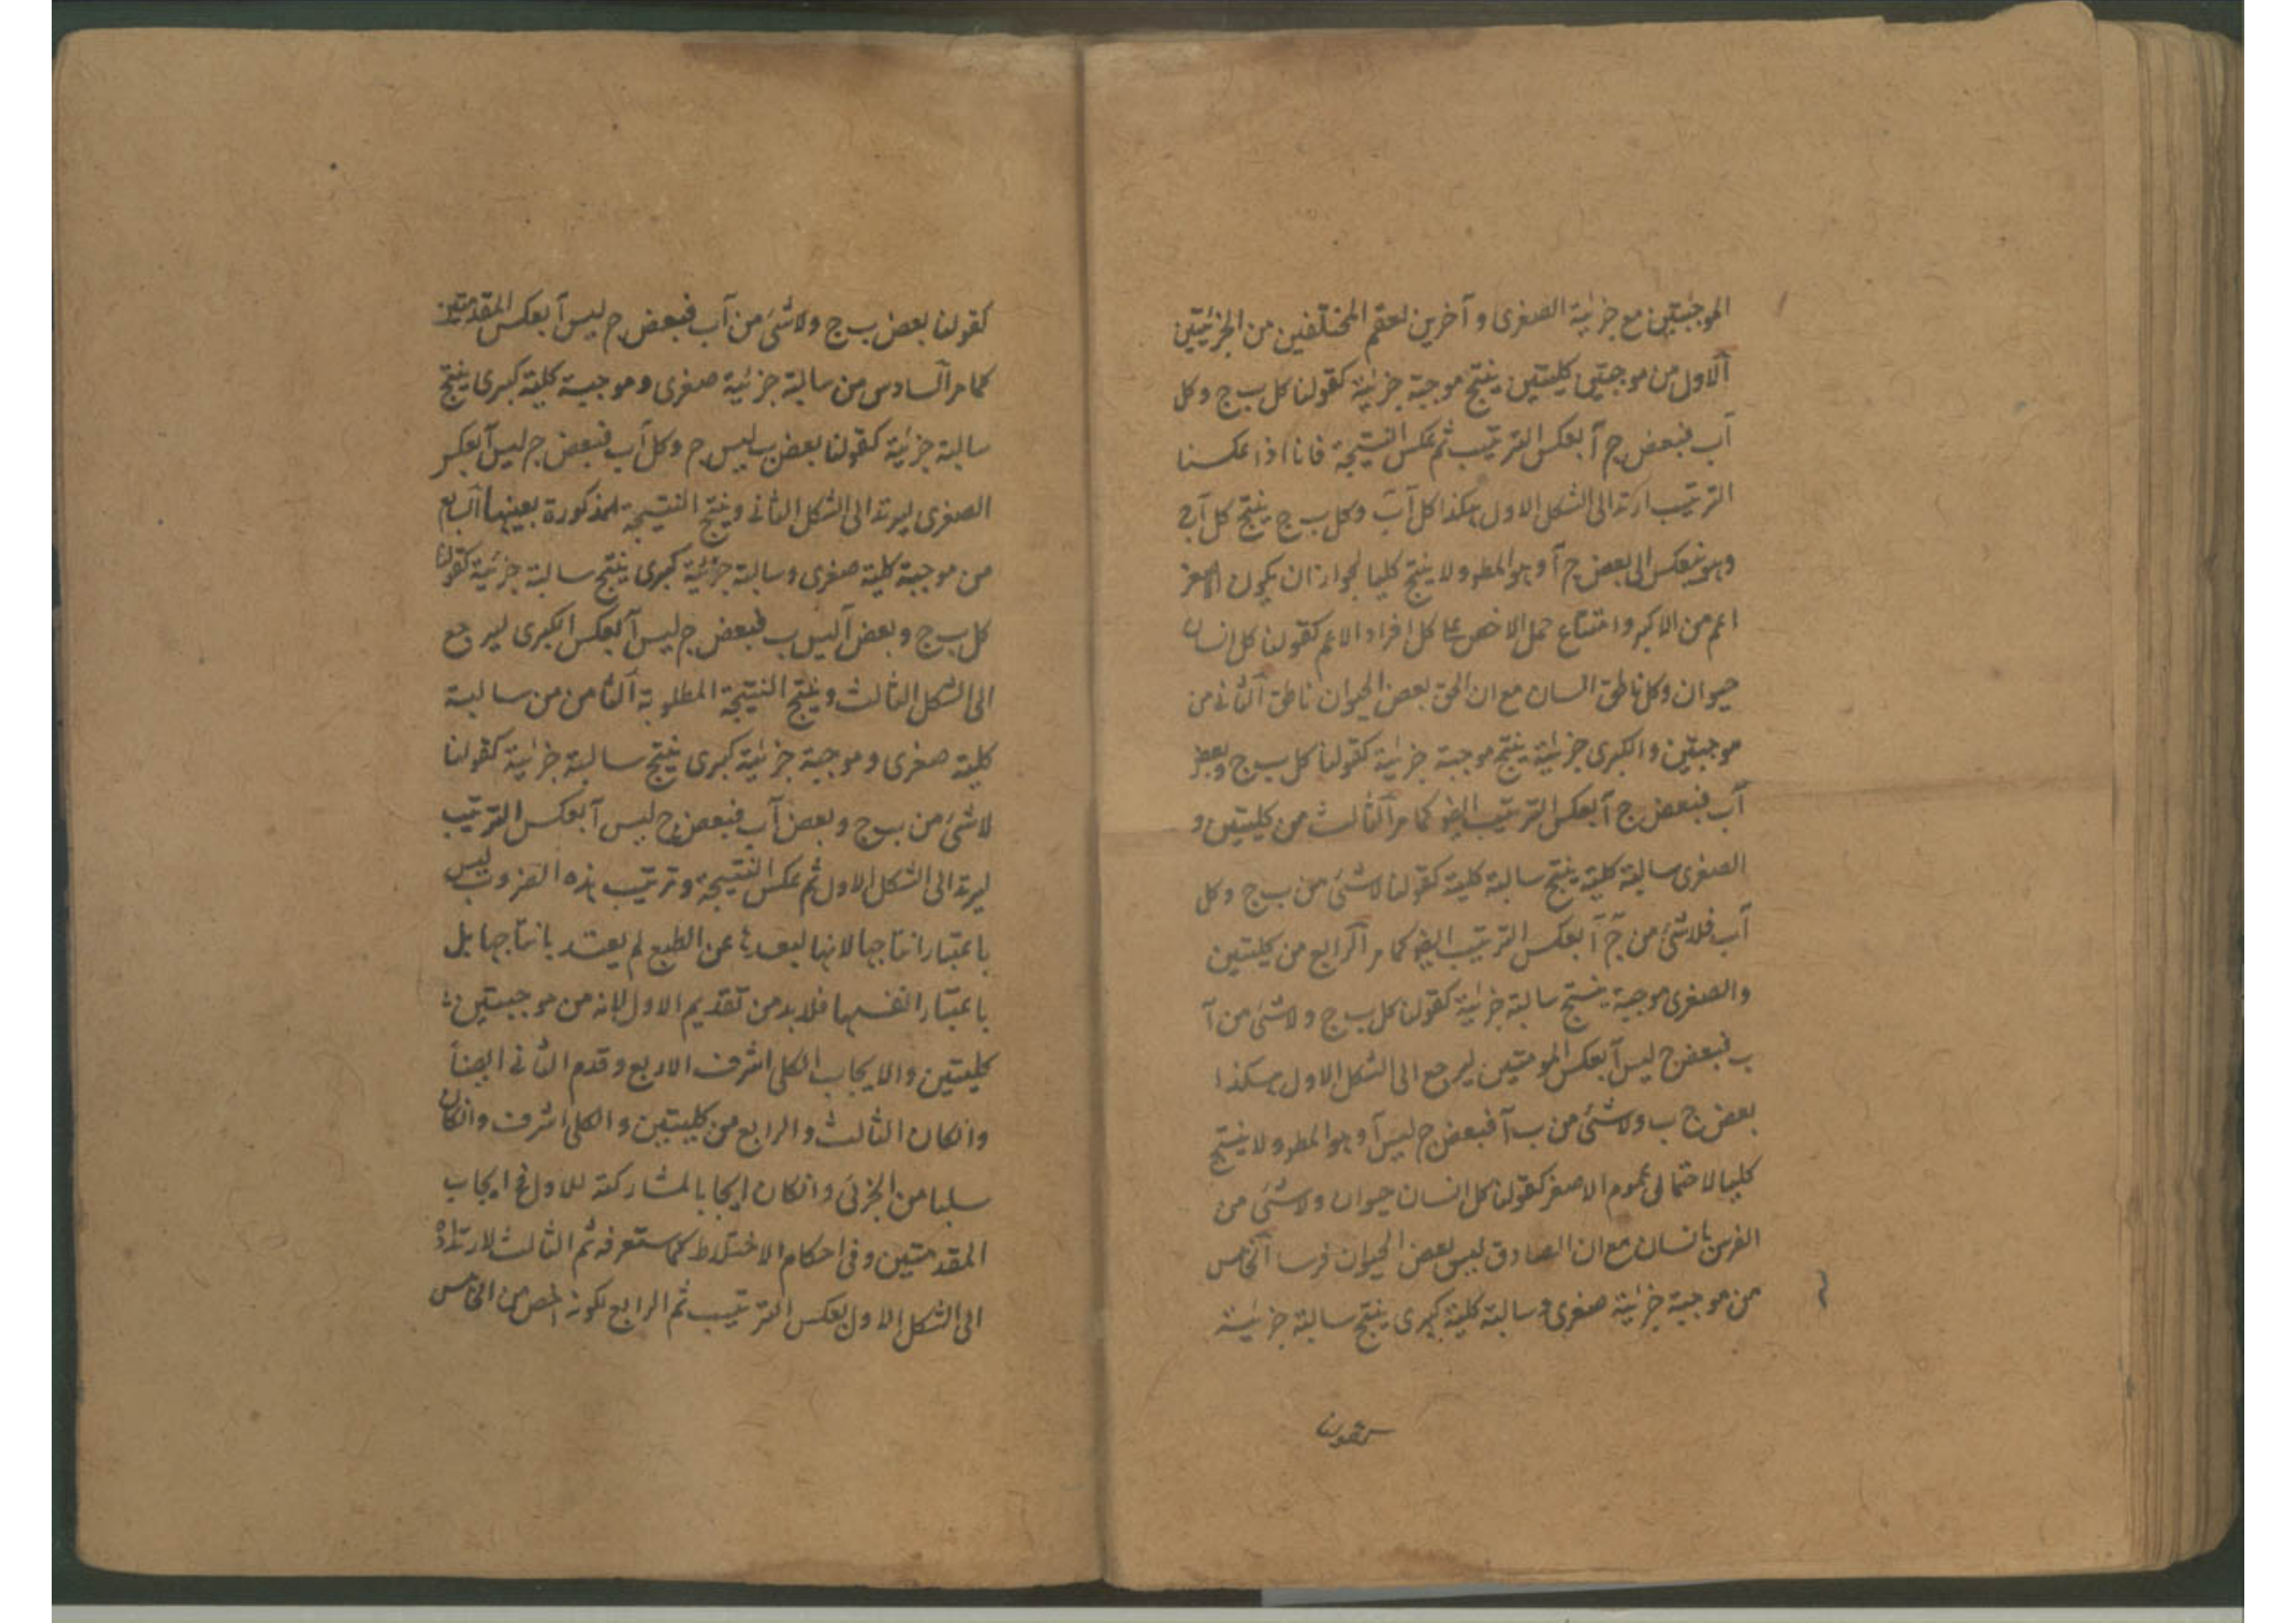 الموجبتين مع جزئية الصغرى و آخرين لعقم المختلفين من الجزئيتين
الاول من موجبتين كليتين ينتج موجبة جزئية كقولنا كل ب ج وكل
آب فبعض ج آ بعكس الترتيب ثم عكس النتيجة فانا اذا عكسنا
الترتيب ارتد الى الشكل الاول هكذا كل آب وكل ب ج ينتج كل آج
وهو ينعكس الى بعض ج آ وهو المطو ولا ينتج كليا لجواز ان يكون الاصغر
اعم من الاكبر وامتناع حمل الاخص على كل افراد الاعم كقولنا كل انسان
حيوان وكل ناطق انسان مع ان الحق بعض الحيوان ناطق الثاني من
موجبتين والكبرى جزئية ينتج موجبة جزئية كقولنا كل ب ج وبعض
آب فبعض ج آ بعكس الترتيب ايضو كما مر الثالث من كليتين و
الصغرى سالبة كلية ينتج سالبة كلية كقولنا لاشئ من ب ج وكل
آب فلاشئ من ج آ بعكس الترتيب ايضو كما مر الرابع من كليتين
والصغرى موجبة ينتج سالبة جزئية كقولنا كل ب ج ولاشئ من آ
ب فبعض ج ليس آ بعكس المقدمتين ليرجع الى الشكل الاول هكذا
بعض ج ب ولاشئ من ب آ فبعض ج ليس آ وهو المطو ولا ينتج
كليا لاحتمال عموم الاصغر كقولنا كل انسان حيوان ولاشئ من
الفرس بانسان مع ان الصادق ليس بعض الحيوان فرسا الخامس
من موجبة جزئية صغرى وسالبة كلية كبرى ينتج سالبة جزئية
كقولنا
كقولنا بعض ب ج ولاشئ من آب فبعض ج ليس آ بعكس المقدمتين
كما مر السادس من سالبة جزئية صغرى وموجبة كلية كبرى ينتج
سالبة جزئية كقولنا بعض ب ليس ج وكل آب فبعض ج ليس آ بعكس
الصغرى ليرتد الى الشكل الثاني وينتج النتيجة المذكورة بعينها السابع
من موجبة كلية صغرى وسالبة جزئية كبرى ينتج سالبة جزئية كقولنا
كل ب ج وبعض آ ليس ب فبعض ج ليس آ بعكس الكبرى ليرجع
الى الشكل الثالث وينتج النتيجة المطلوبة الثامن من سالبة
كلية صغرى وموجبة جزئية كبرى ينتج سالبة جزئية كقولنا
لاشئ من ب ج وبعض آب فبعض ج ليس آ بعكس الترتيب
ليرتد الى الشكل الاول ثم عكس النتيجة وترتيب هذه الضروب ليس
باعتبار انتاجها لانها لبعدها عن الطبع لم يعتد بانتاجها بل
باعتبار انفسها فلا بد من تقديم الاول لانه من موجبتين
كليتين والايجاب الكلى اشرف الاربع وقدم الثاني ايضاً
وانكان الثالث والرابع من كليتين والكلى اشرف وانكان
سلبا من الجزئى وانكان ايجابا لمشاركته للاول في ايجاب
المقدمتين وفى احكام الاختلاط كما ستعرفه ثم الثالث لارتداده
الى الشكل الاول بعكس الترتيب ثم الرابع لكونه اخص من الخامس